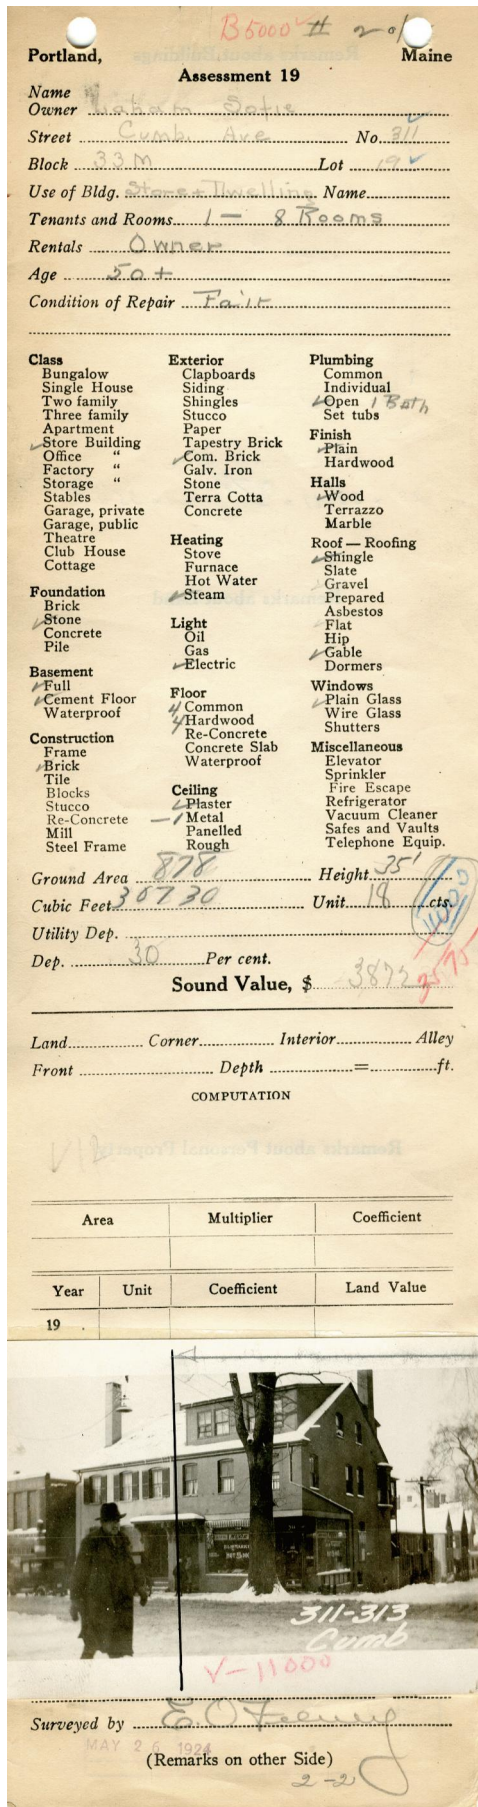 B5000 # 20/
Portland, Maine
Assessment 19
Name
Owner Laham Sofie
Street Cumb. Ave No. 311
Block 33M Lot 19
Use of Bldg. Store + Dwelling Name
Tenants and Rooms 1 — 8 Rooms
Rentals Owner
Age 50+
Condition of Repair Fair
Class
Bungalow
Single House
Two family
Three family
Apartment
Store Building
Office "
Factory "
Storage "
Stables
Garage, private
Garage, public
Theatre
Club House
Cottage
Foundation
Brick
Stone
Concrete
Pile
Basement
Full
Cement Floor
Waterproof
Construction
Frame
Brick
Tile
Blocks
Stucco
Re-Concrete
Mill
Steel Frame
Exterior
Clapboards
Siding
Shingles
Stucco
Paper
Tapestry Brick
Com. Brick
Galv. Iron
Stone
Terra Cotta
Concrete
Heating
Stove
Furnace
Hot Water
Steam
Light
Oil
Gas
Electric
Floor
Common
Hardwood
Re-Concrete
Concrete Slab
Waterproof
Ceiling
Plaster
Metal
Panelled
Rough
Plumbing
Common
Individual
Open 1 Bath
Set tubs
Finish
Plain
Hardwood
Halls
Wood
Terrazzo
Marble
Roof — Roofing
Shingle
Slate
Gravel
Prepared
Asbestos
Flat
Hip
Gable
Dormers
Windows
Plain Glass
Wire Glass
Shutters
Miscellaneous
Elevator
Sprinkler
Fire Escape
Refrigerator
Vacuum Cleaner
Safes and Vaults
Telephone Equip.
Ground Area 878 Height 35'
Cubic Feet 30730 Unit 18 cts.
4000
Utility Dep.
Dep. 30 Per cent.
3575
Sound Value, $ 3872
Land Corner Interior Alley
Front Depth = ft.
COMPUTATION
Remarks about Personal Property
Area Multiplier Coefficient
Year Unit Coefficient Land Value
19
311-313
Cumb
V-11000
Surveyed by E. O
MAY 26 1924
(Remarks on other Side)
2-2